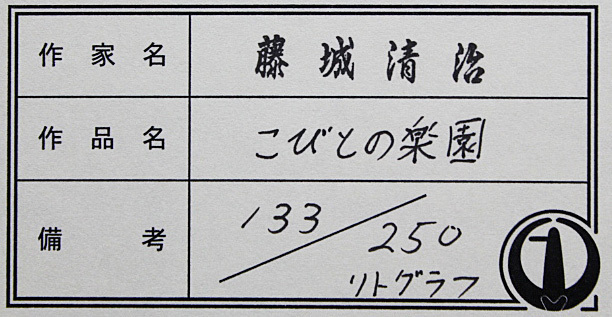 作家名 藤城清治
作品名 こびとの楽園
備考 133/250
リトグラフ